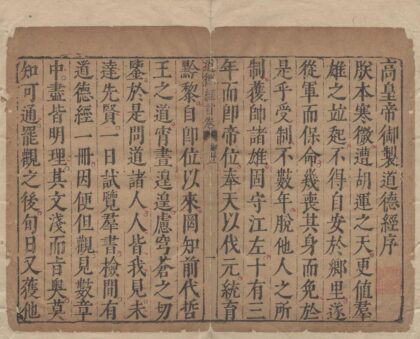 高皇帝御製道德經序
朕本寒微遭胡運之天更值羣
雄之並起不得自安於鄉里遂
從軍而保命幾喪其身而免於
是乎受制不數年脫他人之所
制獲帥諸雄固守江左十有三
年而即帝位奉天以代元統育
黔黎自即位以來罔知前代哲
王之道宵晝遑遑慮穹蒼之切
鑒於是問道諸人人皆我見未
達先賢一日試覽羣書檢間有
道德經一冊因便但觀見數章
中盡皆明理其文淺而旨奧莫
知可通罷觀之後旬日又獲他